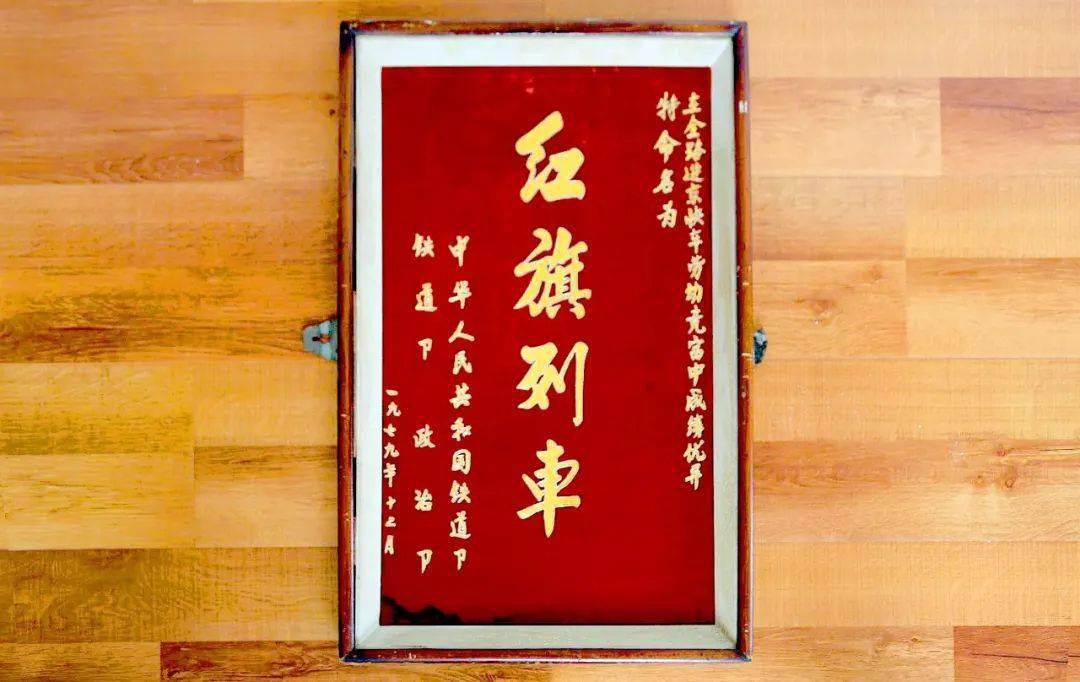 在全路进京快车劳动竞赛中成绩优异
特命名为
红旗列車
中华人民共和国铁道卩
铁道卩政治卩
一九七九年十二月